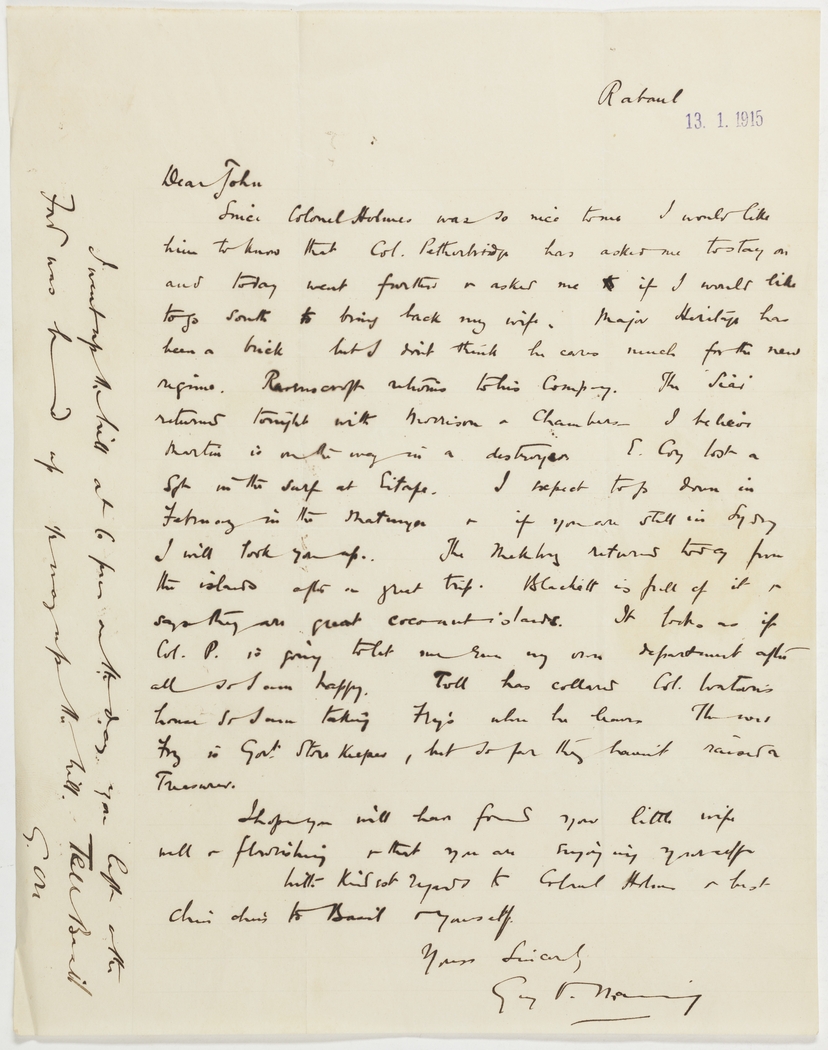 Rabaul
13. 1. 1915
Dear John
Since Colonel Holmes was so nice to me I would like
him to know that Col. Petherbridge has asked me to stay on
and today went further & asked me if I would like
to go south to bring back my wife. Major Heritage has
been a brick but I don't think he cares much for the new
regime. Ravenscroft returns to his Company. The Siar
returned tonight with Morrison & Chambers I believe
Martin is on the way in a destroyer E. Coy lost a
Sgt in the surf at Eitape. I expect to go down in
February in the Matunga & if you are still in Sydney
I will look you up. The Meklong returned today from
the islands after a great trip. Blackett is full of it &
says they are great cocoanut islands. It looks as if
Col. P. is going to let me run my own department after
all so I am happy. Toll has collared Col. Watson's
house so I am taking Fry's when he leaves The
Fry is Govt Store Keeper, but so far they haven't raised a
Treasurer.
I hope you will have found your little wife
well & flourishing & that you are enjoying yourself
With Kindest regards to Colonel Holmes & best
chin chins to Basil & yourself.
Yours Sincerely
Guy O. Manning
I went up the hill at 6 pm on the day you left & the
Fad was up up the hill. Tell Basil
G. M